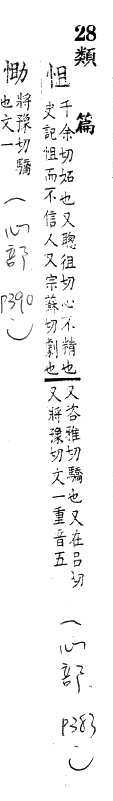 28類篇
怚 千余切妬也又聰徂切心不精也又咨雅切驕也又在呂切
史記怚而不信人又宗蘇切劇也又將豫切文一重音五
(心部 P383)
㤖 將豫切驕
也文一
(心部 P390)